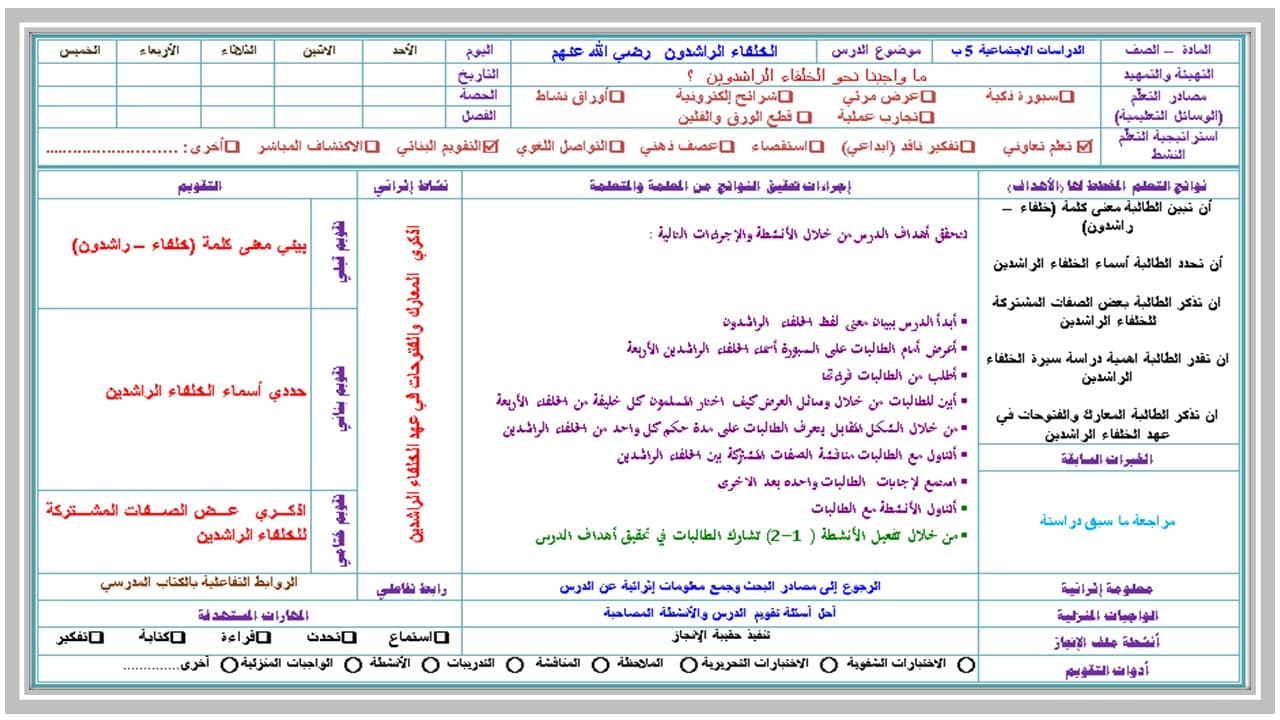 المادة – الصف
الدراسات الاجتماعية 5ب
موضوع الدرس
الخلفاء الراشدون رضي الله عنهم
اليوم
الأحد
الاثنين
الثلاثاء
الأربعاء
الخميس
التهيئة والتمهيد
ما واجبنا نحو الخلفاء الراشدين ؟
التاريخ
مصادر التعلم
(الوسائل التعليمية)
سبورة ذكية
عرض مرئي
شرائح إلكترونية
أوراق نشاط
تجارب عملية
قطع الورق والفلين
الحصة
الفصل
استراتيجية التعلم
النشط
تعلم تعاوني
تفكير ناقد (ابداعي)
استقصاء
عصف ذهني
التواصل اللغوي
التقويم البنائي
الاكتشاف المباشر
أخرى: .........................
نواتج التعلم المخطط لها (الأهداف)
إجراءات تحقيق النواتج من المعلمة والمتعلمة
نشاط إثرائي
التقويم
أن تبين الطالبة معنى كلمة (خلفاء –
راشدون)
أن تحدد الطالبة أسماء الخلفاء الراشدين
ان تذكر الطالبة بعض الصفات المشتركة
للخلفاء الراشدين
ان تقدر الطالبة اهمية دراسة سيرة الخلفاء
الراشدين
ان تذكر الطالبة المعارك والفتوحات في
عهد الخلفاء الراشدين
الخبرات السابقة
مراجعة ما سبق دراسة
تتحقق أهداف الدرس من خلال الأنشطة والإجراءات التالية :
▪ أبدأ الدرس ببيان معنى لفظ الخلفاء الراشدون
▪ أعرض أمام الطالبات على السبورة أسماء الخلفاء الراشدين الأربعة
▪ أطلب من الطالبات قراءتها
▪ أبين للطالبات من خلال وسائل العرض كيف اختار المسلمون كل خليفة من الخلفاء الأربعة
▪ من خلال الشكل المقابل يتعرف الطالبات على مدة حكم كل واحد من الخلفاء الراشدين
▪ أتناول مع الطالبات مناقشة الصفات المشتركة بين الخلفاء الراشدين
▪ استمع لإجابات الطالبات واحده بعد الاخرى
▪ أتناول الأنشطة مع الطالبات
▪ من خلال تفعيل الأنشطة ( 1–2) تشارك الطالبات في تحقيق أهداف الدرس
اذكري المعارك والفتوحات في عهد الخلفاء الراشدين
تقويم قبلي
بيني معنى كلمة (خلفاء – راشدون)
تقويم بنائي
حددي أسماء الخلفاء الراشدين
تقويم ختامي
اذكـري عـض الصـفات المشتـركة
للخلفاء الراشدين
معلومة إثرائية
الرجوع إلى مصادر البحث وجمع معلومات إثرائية عن الدرس
رابط تفاعلي
الروابط التفاعلية بالكتاب المدرسي
الواجبات المنزلية
أحل أسئلة تقويم الدرس والأنشطة المصاحبة
المهارات المستهدفة
أنشطة ملف الإنجاز
تنفيذ حقيبة الإنجاز
استماع
تحدث
قراءة
كتابة
تفكير
أدوات التقويم
الاختبارات الشفوية
الاختبارات التحريرية
الملاحظة
المناقشة
التدريبات
الأنشطة
الواجبات المنزلية
أخرى..............